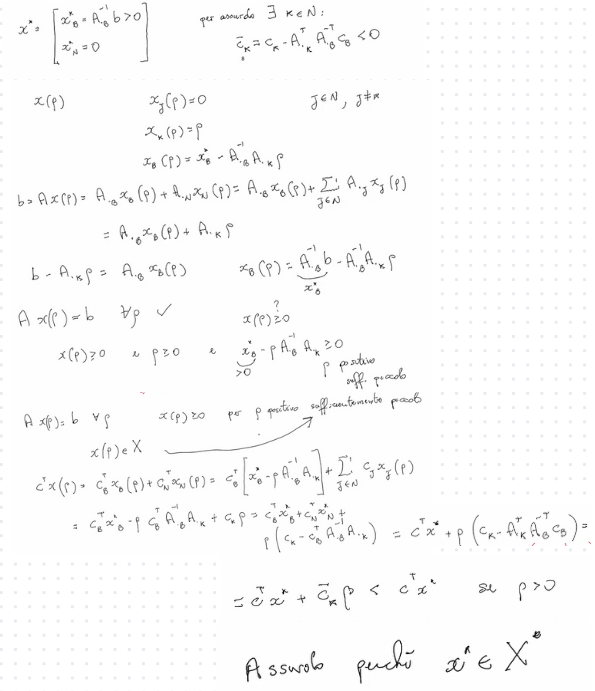 x* = [ x*_B = A_{·B}^{-1} b > 0    per assurdo ∃ k∈N :
x*_N = 0 ]    c̄_k = c_k - A_{·k}^T A_{·B}^{-T} c_B < 0
x(ρ)    x_J(ρ) = 0    J∈N, J≠k
x_k(ρ) = ρ
x_B(ρ) = x*_B - A_{·B}^{-1} A_{·k} ρ
b = A x(ρ) = A_{·B} x_B(ρ) + A_{·N} x_N(ρ) = A_{·B} x_B(ρ) + Σ_{J∈N} A_{·J} x_J(ρ)
= A_{·B} x_B(ρ) + A_{·k} ρ
b - A_{·k} ρ = A_{·B} x_B(ρ)    x_B(ρ) = A_{·B}^{-1} b - A_{·B}^{-1} A_{·k} ρ
x*_B
A x(ρ) = b  ∀ρ ✓    x(ρ) ≥ 0
?
x(ρ) ≥ 0  se ρ ≥ 0  e  x*_B - ρ A_{·B}^{-1} A_{·k} ≥ 0
> 0    ρ positivo
suff. piccolo
A x(ρ) = b ∀ρ    x(ρ) ≥ 0  per ρ positivo sufficientemente piccolo
x(ρ) ∈ X
c^T x(ρ) = c_B^T x_B(ρ) + c_N^T x_N(ρ) = c_B^T [ x*_B - ρ A_{·B}^{-1} A_{·k} ] + Σ_{J∈N} c_J x_J(ρ)
= c_B^T x*_B - ρ c_B^T A_{·B}^{-1} A_{·k} + c_k ρ = c_B^T x*_B + c_N^T x*_N +
ρ ( c_k - c_B^T A_{·B}^{-1} A_{·k} ) = c^T x* + ρ ( c_k - A_{·k}^T A_{·B}^{-T} c_B ) =
= c^T x* + c̄_k ρ < c^T x*  se ρ > 0
Assurdo perché x* ∈ X*